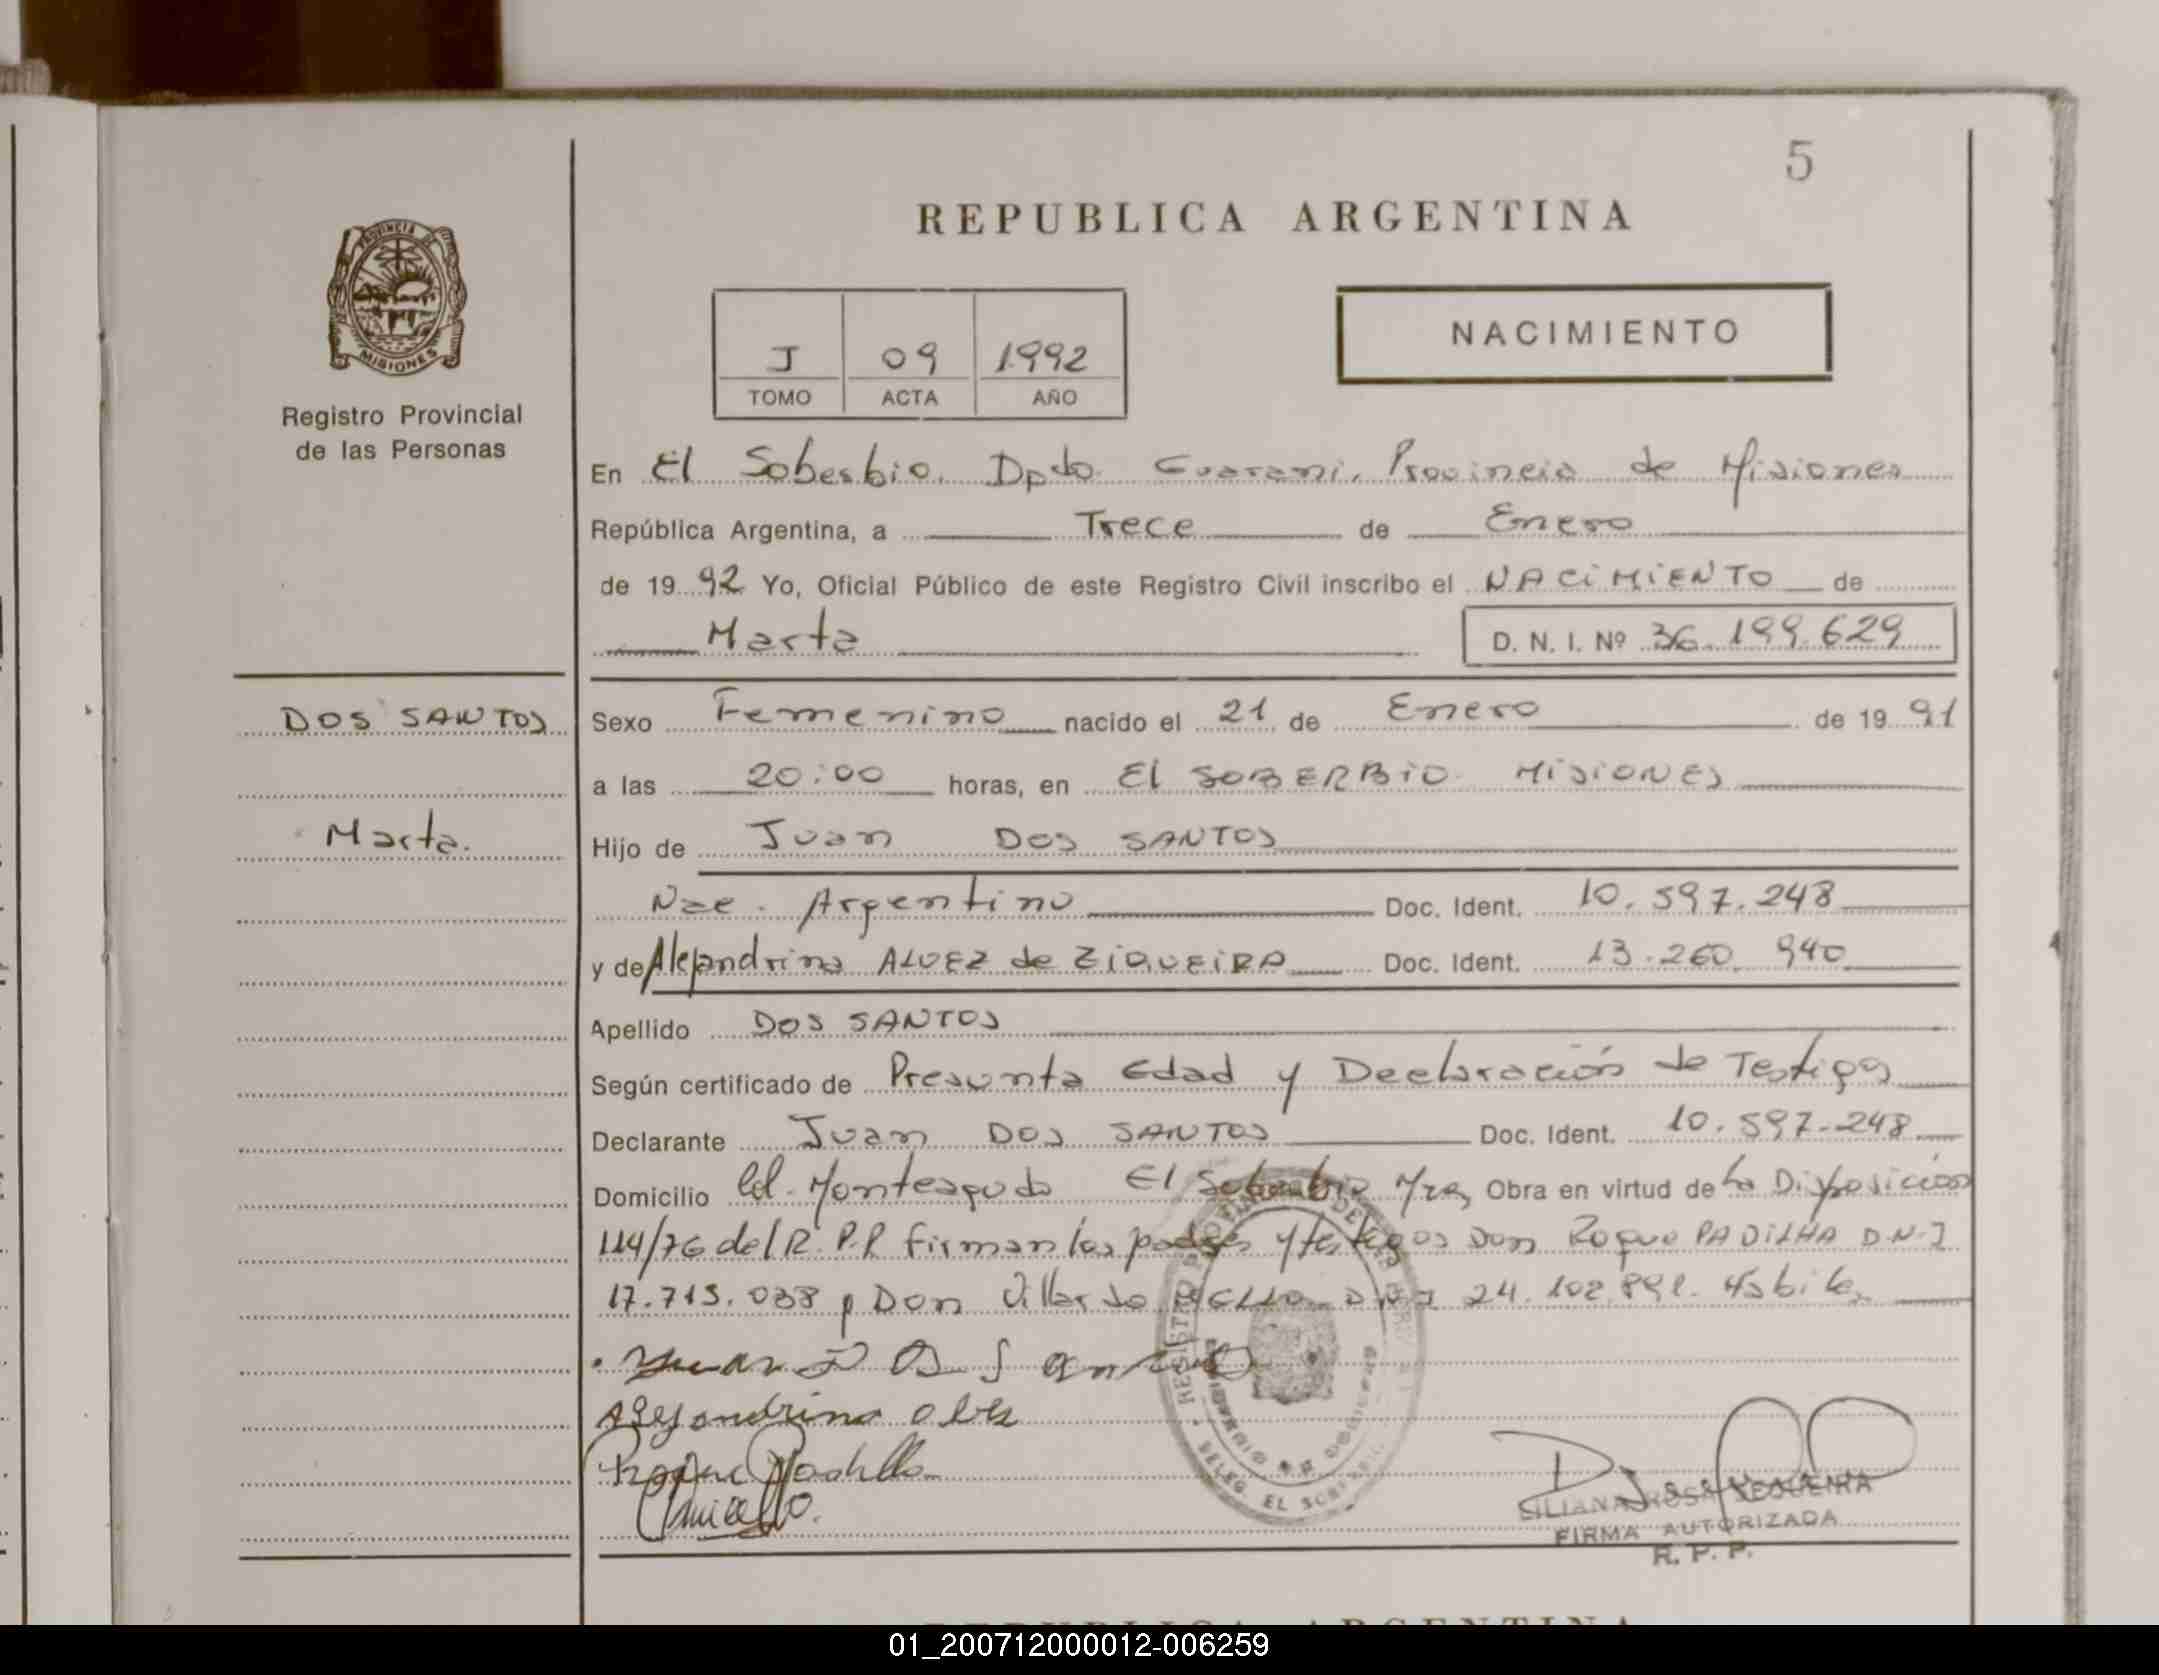 5
REPUBLICA ARGENTINA
PROVINCIA DE
MISIONES
Registro Provincial
de las Personas
J 09 1992
TOMO ACTA AÑO
NACIMIENTO
En El Soberbio. Dpdo. Guarani, Provincia de Misiones
República Argentina, a Trece de Enero
de 19 92 Yo, Oficial Público de este Registro Civil inscribo el NACIMIENTO de
Marta D. N. I. Nº 36.199.629
DOS SANTOS
Marta.
Sexo Femenino nacido el 21 de Enero de 19 91
a las 20:00 horas, en El SOBERBIO. MISIONES
Hijo de Juan DOS SANTOS
Nac. Argentino Doc. Ident. 10.597.248
y de Alejandrina ALVEZ de ZIQUEIRA Doc. Ident. 13.260.940
Apellido DOS SANTOS
Según certificado de Presunta Edad y Declaración de Testigos
Declarante Juan DOS SANTOS Doc. Ident. 10.597.248
Domicilio Col. Monteagudo El Soberbio Mnes, Obra en virtud de La Disposición
114/76 del R.P.P. firman los padres y testigos Don Roque PADILHA D.N.I
17.713.038 y Don Villardo DNI 24.102.891.
Juan DOS Santos
Alejandrina alves
Roque Padilha
REGISTRO
DELEG. EL SOBERBIO
FIRMA AUTORIZADA
R. P. P.
REPUBLICA ARGENTINA
01_200712000012-006259